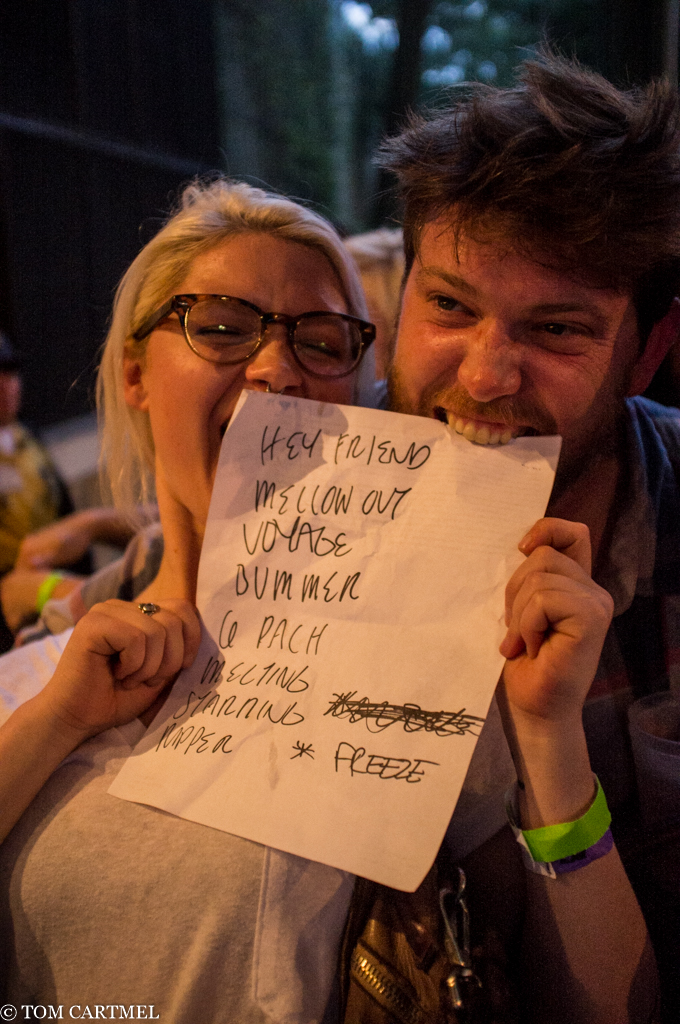 HEY FRIEND
MELLOW OUT
VOYAGE
BUMMER
6 PACK
MELTING
STARRING
RIPPER
* FREEZE
© TOM CARTMEL